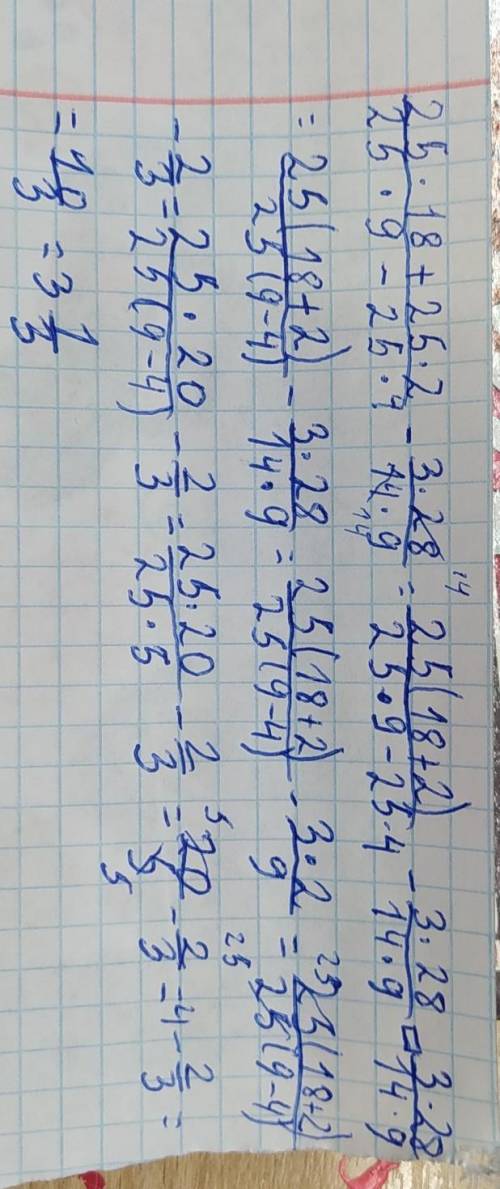 25·18+25·2/25·9-25·4 - 3·28/14·9 = 25(18+2)/25·9-25·4 - 3·28/14·9 = 3·28/14·9
= 25(18+2)/25(9-4) - 3·28/14·9 = 25(18+2)/25(9-4) - 3·2/9 = 25(18+2)/25(9-4)
- 2/3 = 25·20/25(9-4) - 2/3 = 25·20/25·5 - 2/3 = 20/5 - 2/3 = 4 - 2/3 =
= 10/3 = 3 1/3